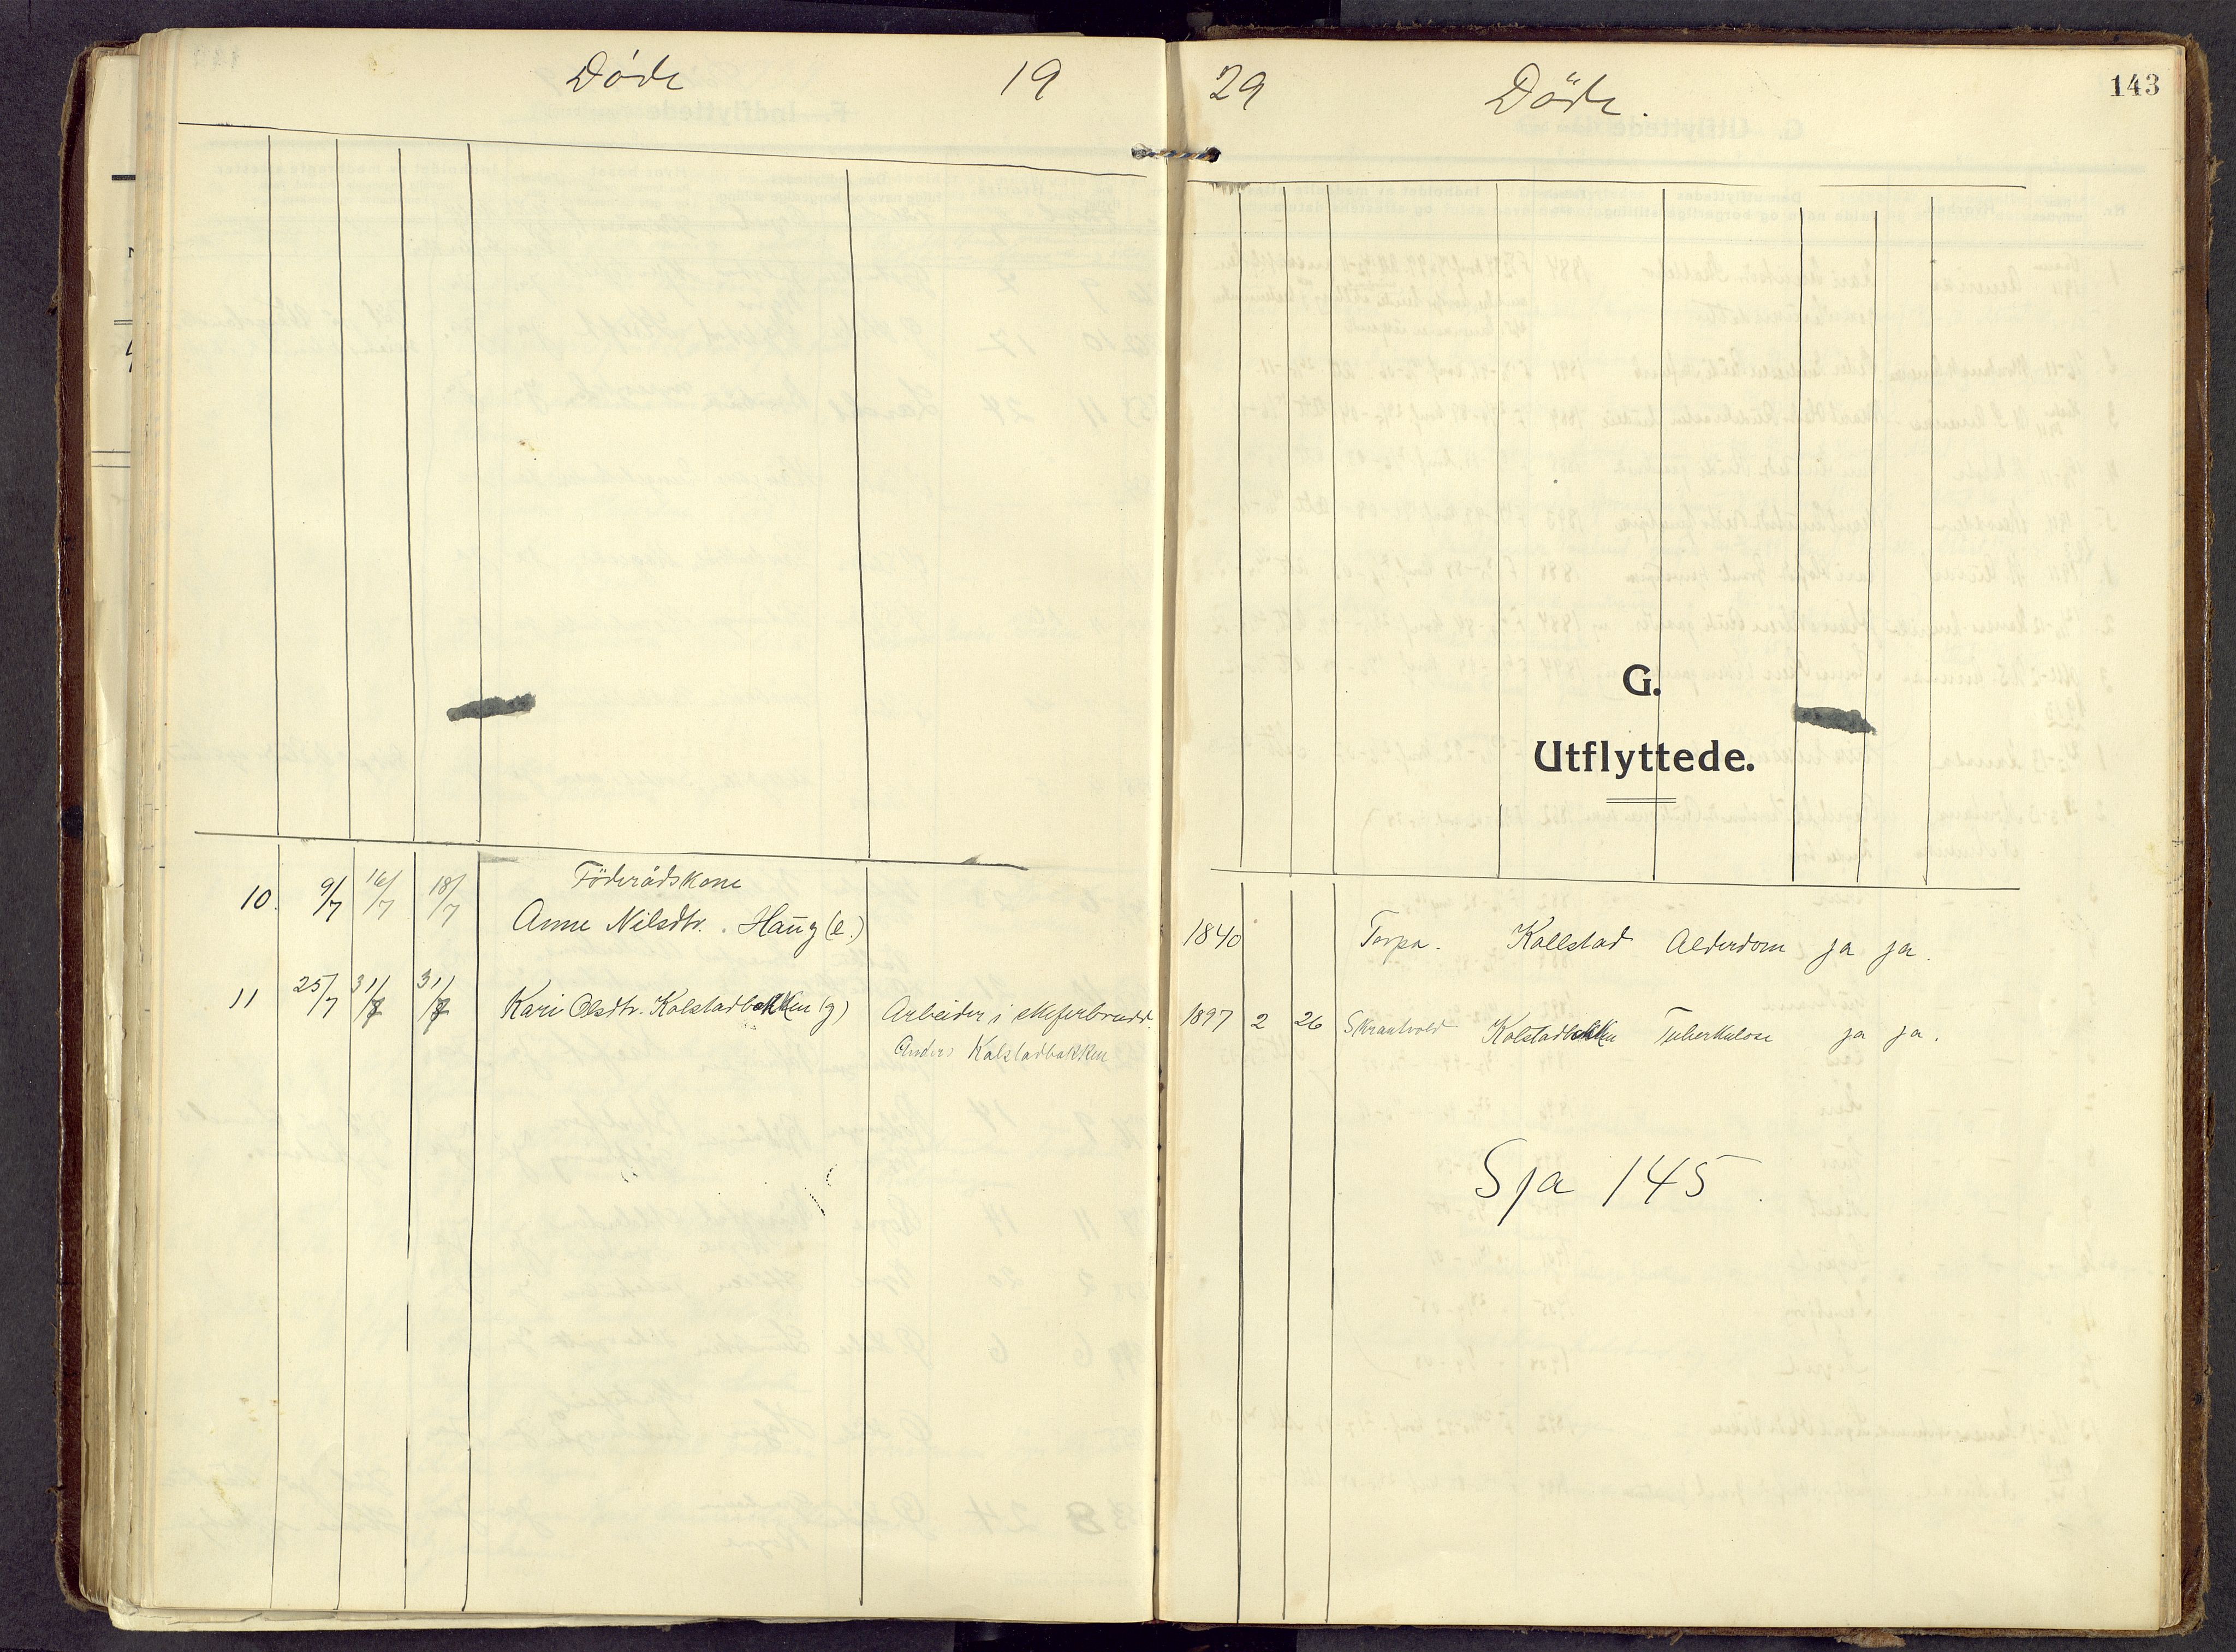 Döde 19
29 Döde.
143
G.
Utflyttede.
10. 9/7 16/7 18/7 Föderådskone
Anne Nilsdtr. Haug (e.)
1840 Torpa. Kollstad Alderdom ja ja.
11 25/7 31/7 31/7 Kari Olsdtr. Kolstadbakken (g) Arbeider i skiferbrudd.
Anders Kolstadbakken
1897 2 26 Skrautvold Kolstadbakken Tuberkulose ja ja.
Sja 145.